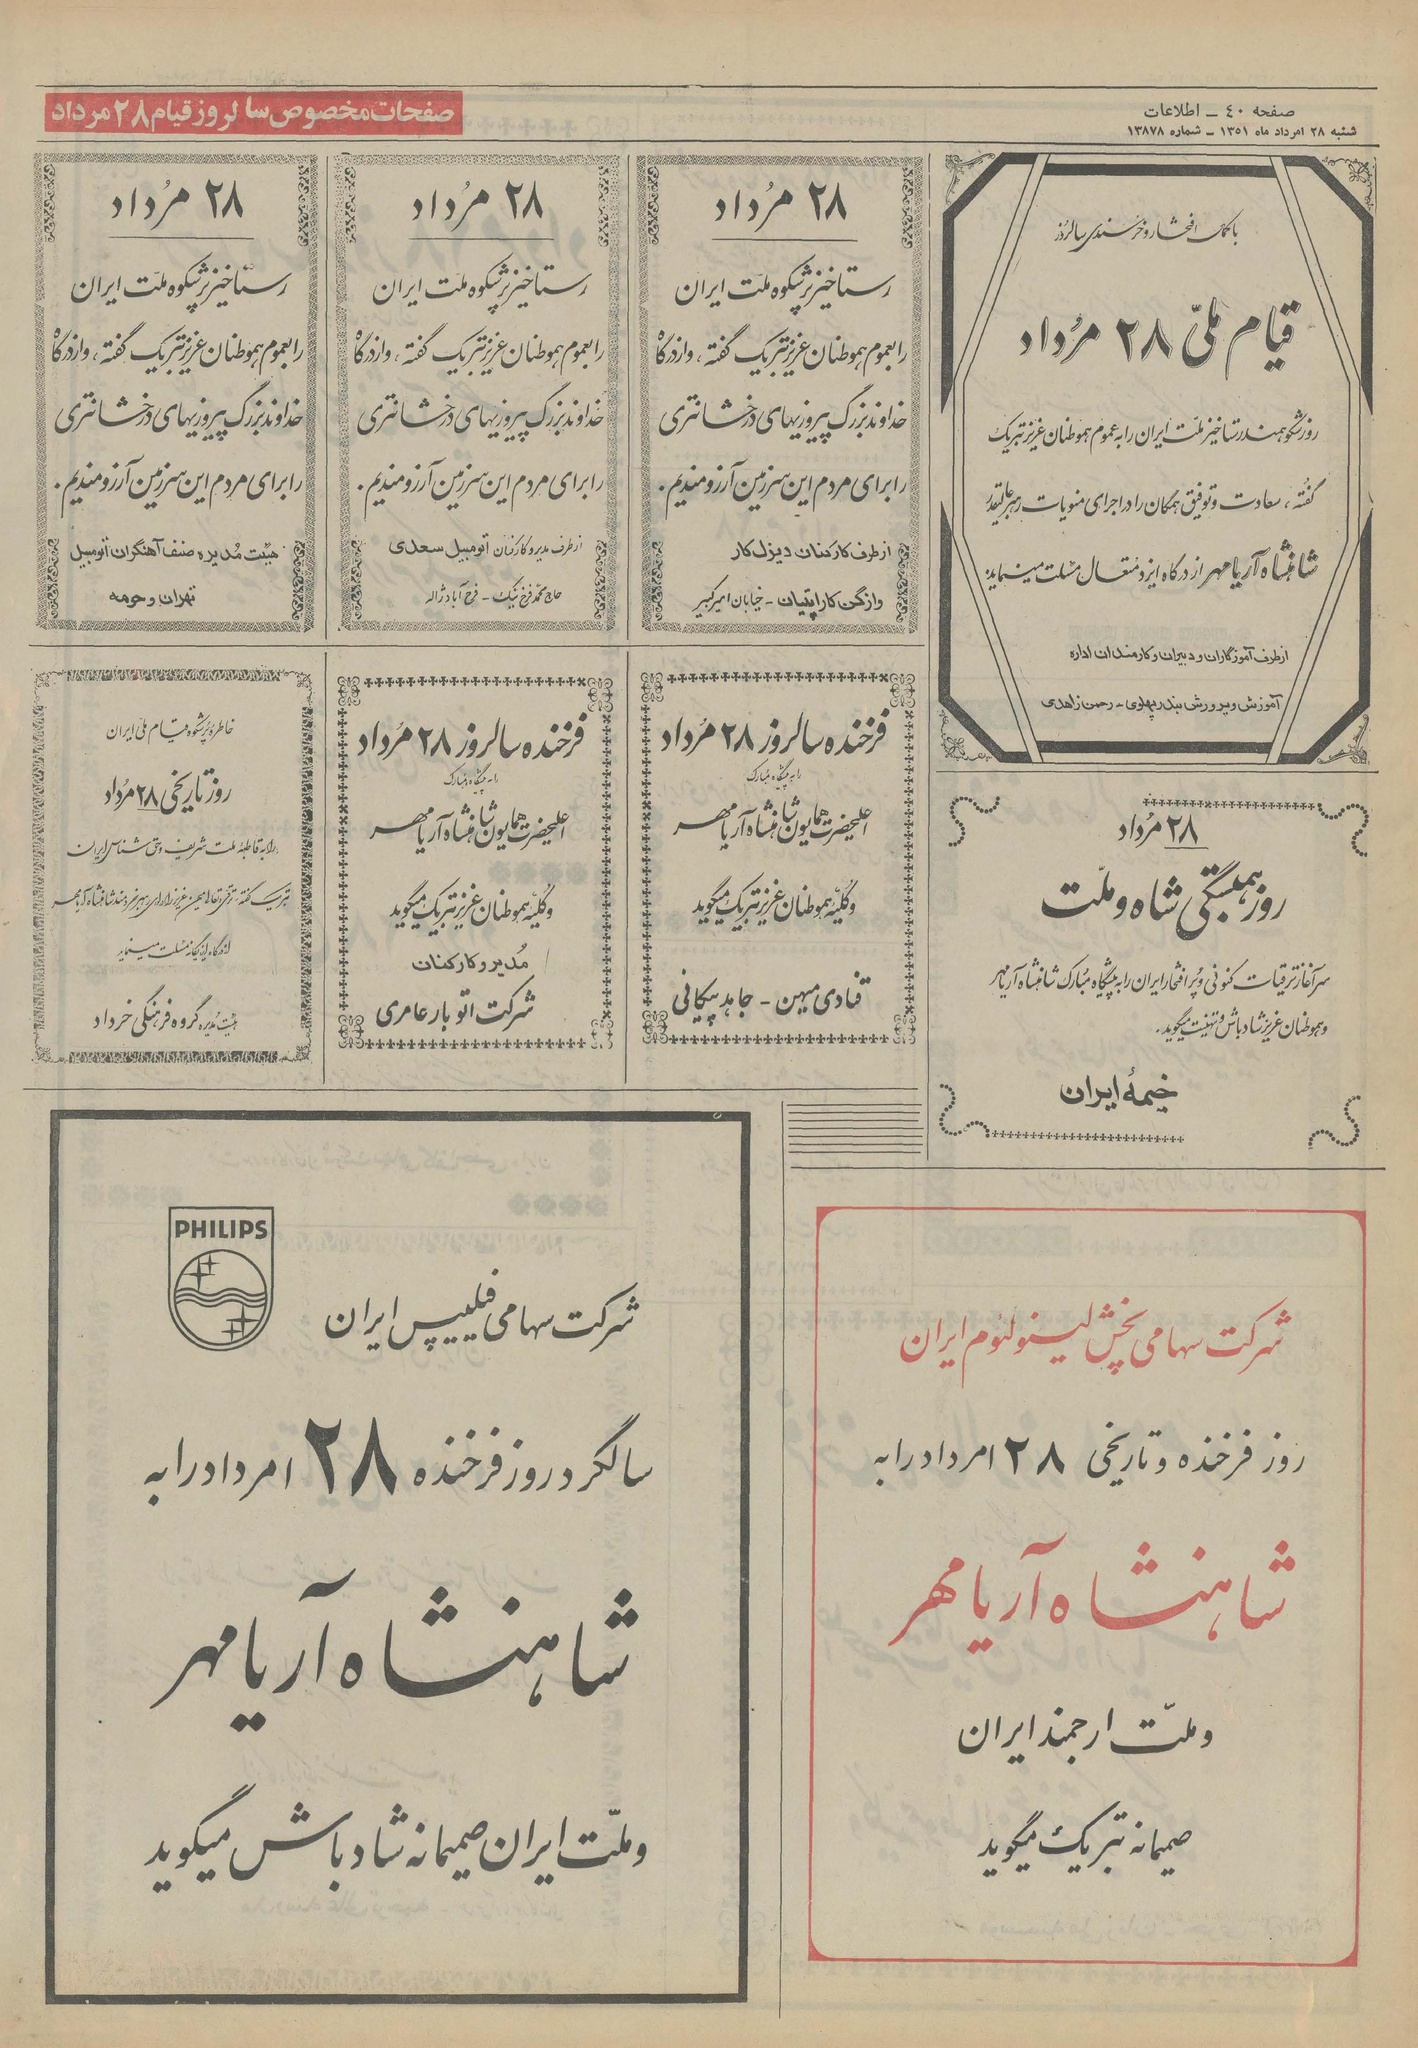 صفحه ۴۰ ـ اطلاعات
شنبه ۲۸ امرداد ماه ۱۳۵۱ ـ شماره ۱۳۸۷۸
صفحات مخصوص سالروز قیام ۲۸ مرداد
با کمال افتخار و خرسندی سالروز
قیام ملّی ۲۸ مرُداد
روز شکوهمند رستاخیز ملت ایران را به عموم هموطنان عزیز تبریک
گفته، سعادت و توفیق همگان را در اجرای منویات رهبر عالیقدر
شاهنشاه آریامهر از درگاه ایزد متعال مسئلت مینماید:
از طرف آموزگاران و دبیران و کارمندان اداره
آموزش و پرورش بندر پهلوی - رحمن زاهدی
۲۸ مرُداد
رستاخیز پرشکوه ملّت ایران
را بعموم هموطنان عزیز تبریک گفته، و از درگاه
خداوند بزرگ پیروزیهای درخشانتری
را برای مردم این سرزمین آرزومندیم.
از طرف کارکنان دیزل کار
وازگن کاراپتیان - خیابان امیرکبیر
۲۸ مرُداد
رستاخیز پرشکوه ملّت ایران
را بعموم هموطنان عزیز تبریک گفته، و از درگاه
خداوند بزرگ پیروزیهای درخشانتری
را برای مردم این سرزمین آرزومندیم.
از طرف مدیر و کارکنان اتومبیل سعدی
حاج محمد فرخ نیک - فرح آباد ژاله
۲۸ مرُداد
رستاخیز پرشکوه ملّت ایران
را بعموم هموطنان عزیز تبریک گفته، و از درگاه
خداوند بزرگ پیروزیهای درخشانتری
را برای مردم این سرزمین آرزومندیم.
هیئت مُدیره صنف آهنگران اتومبیل
تهران و حومه
۲۸ مرُداد
روز همبستگی شاه و ملّت
سرآغاز ترقیات کنونی و پُر افتخار ایران را به پیشگاه مبُارک شاهنشاه آریامهر
و هموطنان عزیز شادباش و تهنیت میگوید.
خیمهٔ ایران
فرخنده سالروز ۲۸ مرُداد
را به پیشگاه مبارک
اعلیحضرت همایون شاهنشاه آریامهر
و کلیّه هموطنان عزیز تبریک میگوید
قنادی میهن - جاهد پیکانی
فرخنده سالروز ۲۸ مرُداد
را به پیشگاه مبارک
اعلیحضرت همایون شاهنشاه آریامهر
و کلیّه هموطنان عزیز تبریک میگوید
مُدیر و کارکنان
شرکت اتوبار عامری
خاطره پرشکوه قیام ملی ایران
روز تاریخی ۲۸ مرُداد
را به قاطبهٔ ملت شریف و حق شناس ایران
تبریک گفته
از درگاه ایزد یگانه مسئلت مینماید
هیئت مُدیره گروه فرهنگی خرداد
شرکت سهامی پخش لینولئوم ایران
روز فرخنده و تاریخی ۲۸ امرداد را به
شاهنشاه آریامهر
و ملّت ارجمند ایران
صمیمانه تبریک میگوید
PHILIPS
شرکت سهامی فیلیپس ایران
سالگرد روز فرخنده ۲۸ امرداد را به
شاهنشاه آریامهر
و ملّت ایران صمیمانه شادباش میگوید